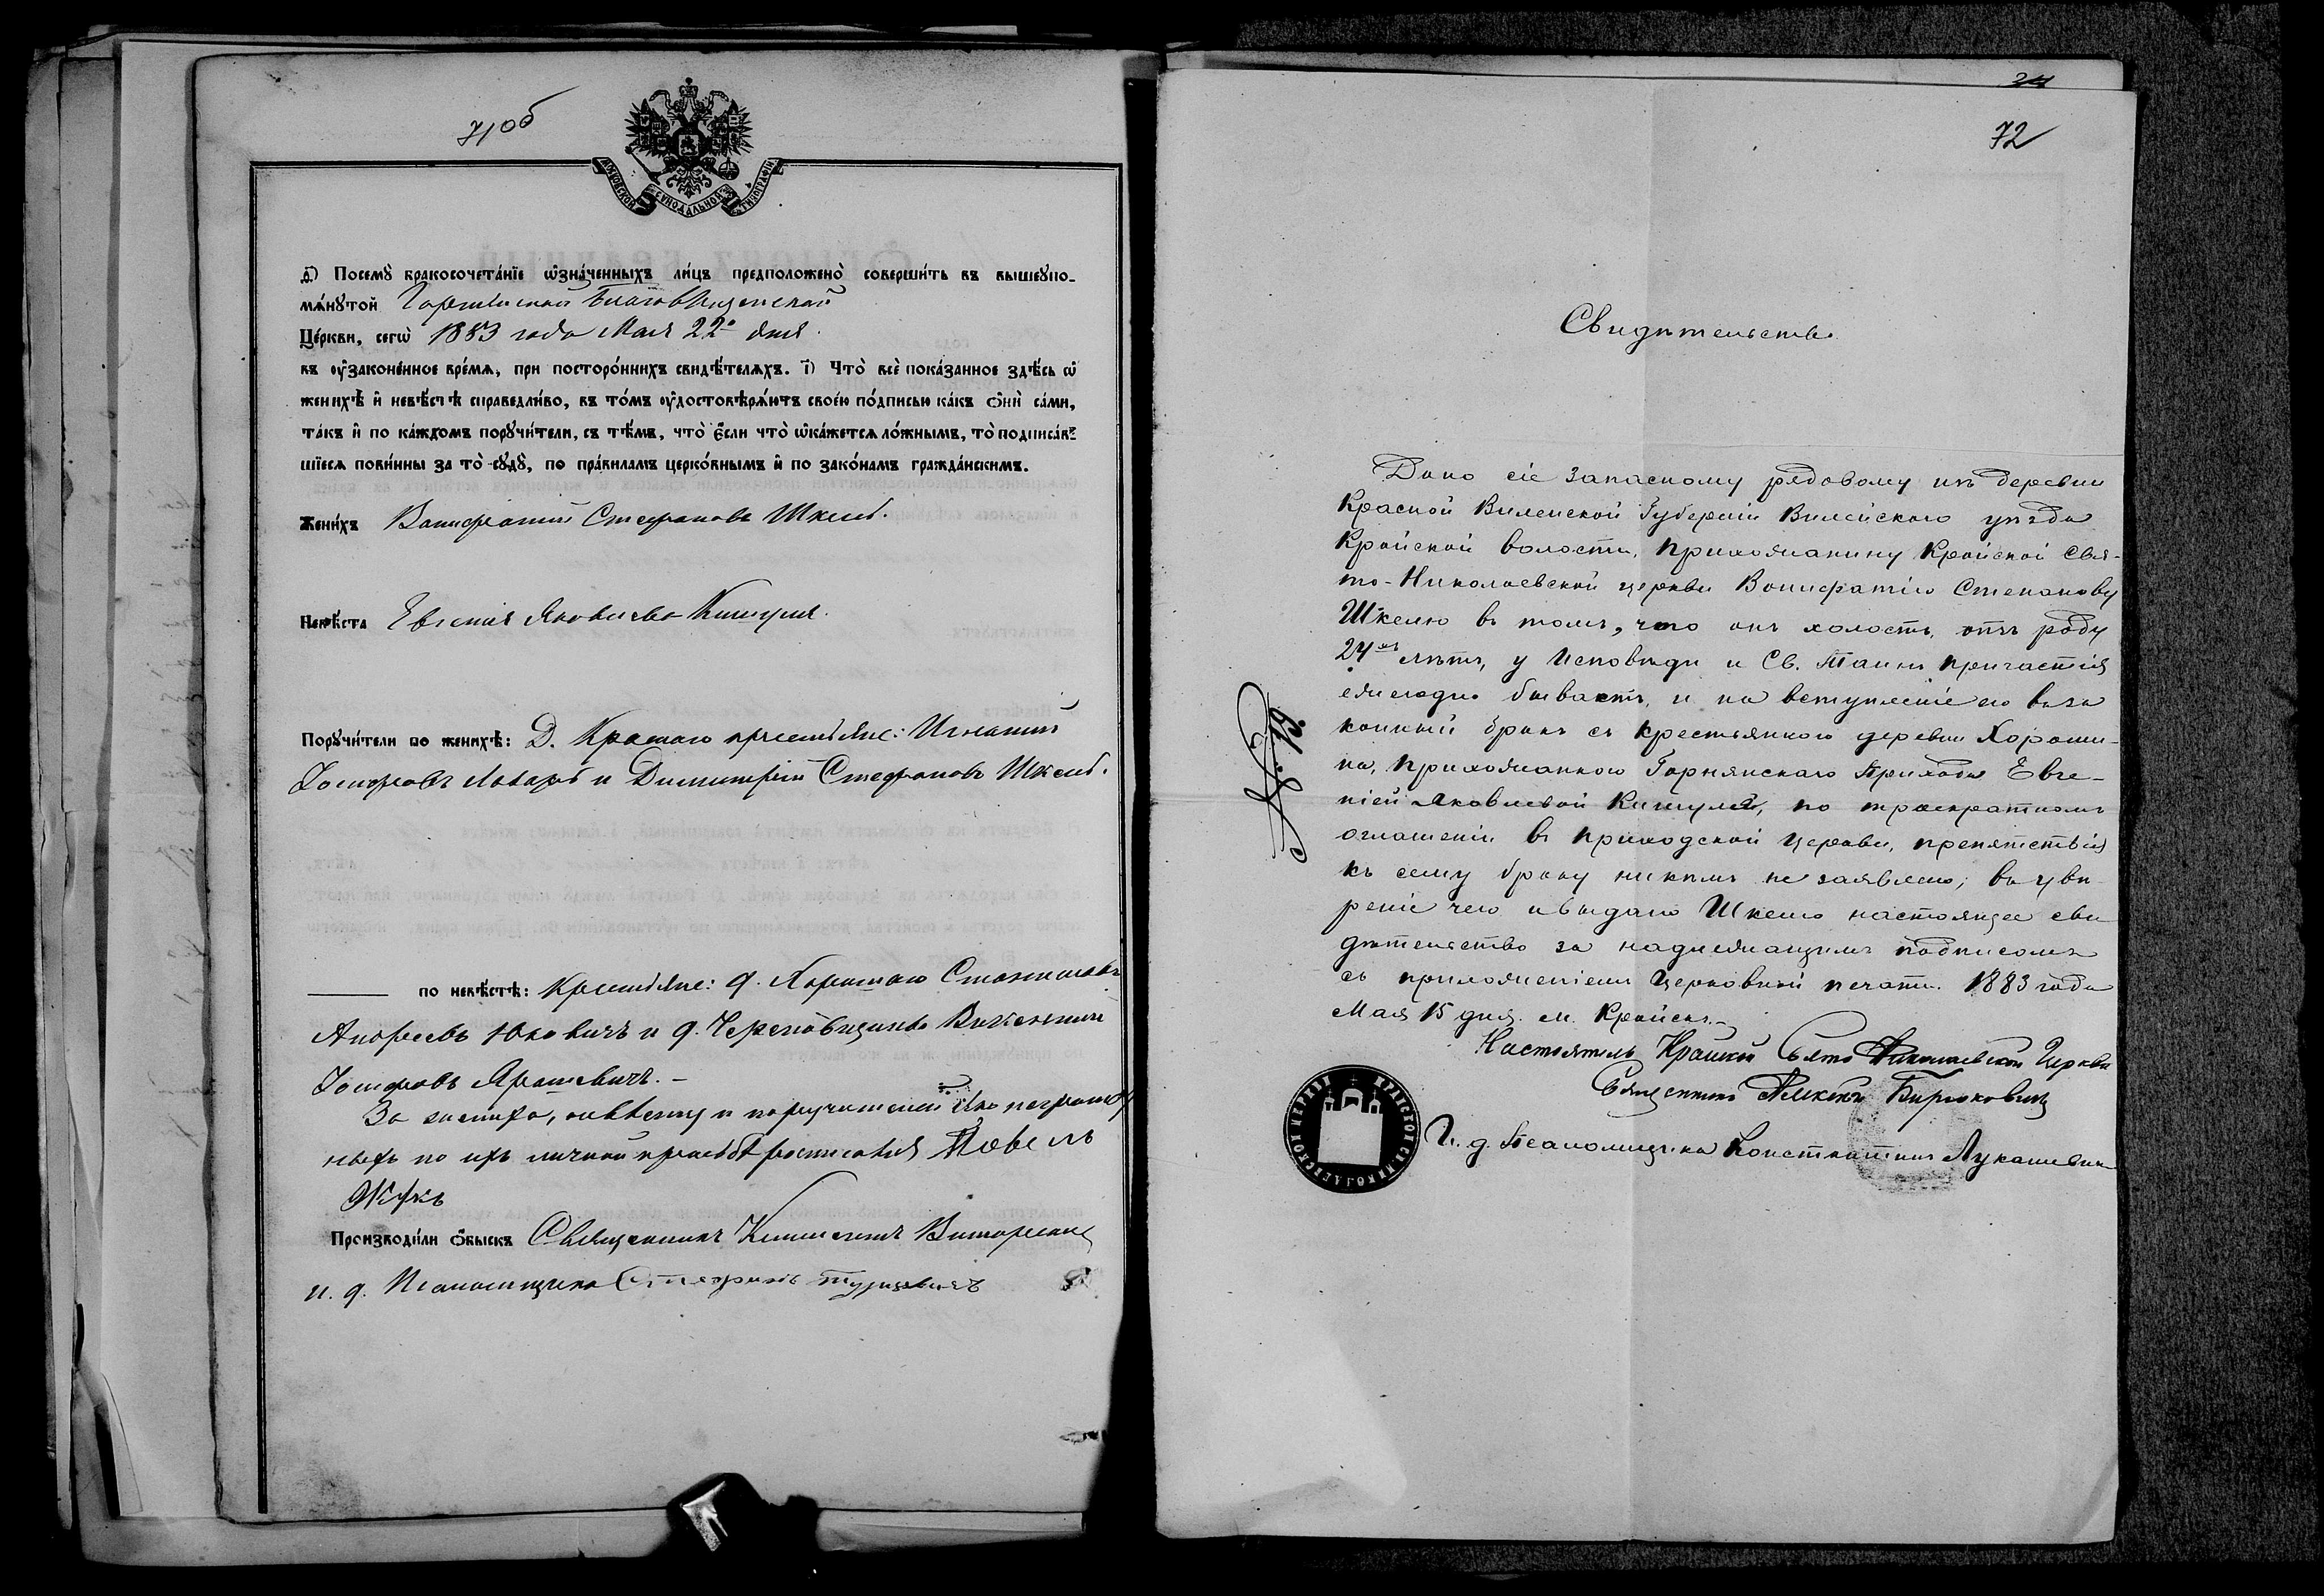 71об
МОСКОВСКОЙ СѴНОДАЛЬНОЙ ТИПОГРАФІИ
д҃) Посемꙋ̀ бракосочета́нїе ѡ҆зна́ченныхъ ли́цъ предположено̀ соверши́ть въ вышеꙋпо-
мѧ́нꙋтой Благовѣщенской
Це́ркви, сегѡ̀ 1883 года Мая 22го дня.
въ ᲂу҆законе́нное вре́мѧ, при посторо́ннихъ свидѣ́телѧхъ. і҃) Что̀ всѐ пока́занное здѣ́сь ѡ҆
женихѣ̀ и҆ невѣ́стѣ справедли́во, въ то́мъ ᲂу҆достовѣрѧ́ютъ свое́ю по́дписью ка́къ ѻ҆нѝ са́ми,
та́къ и҆ по ка́ждомъ порꙋчи́тели, съ тѣ́мъ, что̀ є҆́сли что̀ ѡ҆ка́жетсѧ ло́жнымъ, то̀ подписа́в-
шїесѧ пови́нны за то̀ сꙋдꙋ̀, по пра́виламъ церко́внымъ и҆ по зако́намъ гражда́нскимъ.
Жени́хъ Вонифатій Стефановъ Шкель.
Невѣ́ста Евгенія Яковлева Кишуля.
Порꙋчи́тели по женихѣ̀: Д. Краснаго крестьяне: Игнатій
Іосифовъ Лазарь и Димитрій Стефановъ Шкель.
по невѣ́стѣ: Крестьяне: д. Станиславъ
Андреевъ Юховичъ и д. Викентій
Іосифовъ Ярошевичъ. –
За жениха, невѣсту и поручителей неграмот
ныхъ по ихъ личной просьбѣ росписался Павелъ
Жукъ
Производи́ли ѻ҆́быскъ Священникъ
и. д. Псаломщика Стефанъ Турцевичъ
34
72
Свидѣтельство.
Дано сіе запасному рядовому изъ деревни
Красной Виленской Губерніи Вилейскаго уѣзда
Крайской волости, прихожанину Крайской Свя-
то-Николаевской церкви Вонифатію Степанову
Шкелю въ томъ, что онъ холостъ, отъ роду
24хъ лѣтъ, у Исповѣди и Св. Таинъ причастія
ежегодно бываетъ, и на вступленіе его въ за
конный бракъ съ крестьянкою деревни Хороши-
на, прихожанкою Горнянскаго прихода Евге-
ніей Яковлевой Кишулей, по троекратномъ
оглашеніи въ приходской церкви, препятствія
къ сему браку никѣмъ не заявлено; въ увѣ-
реніе чего и выдано Шкелю настоящее сви
дѣтельство за надлежащимъ подписомъ
съ приложеніемъ церковной печати. 1883 года
Мая 15 дня. м. Крайскъ. –
№ 19.
Настоятель Крайской Свято Николаевской Церкви
Священникъ Алексѣй Бирюковичъ
И. д. Псаломщика Константинъ Лукашевичъ